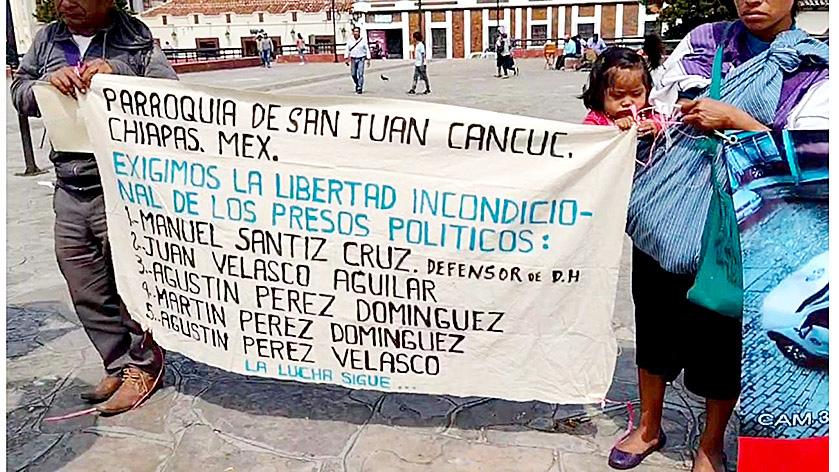 PARROQUIA DE SAN JUAN CANCUC,
CHIAPAS. MEX.
EXIGIMOS LA LIBERTAD INCONDICIO-
NAL DE LOS PRESOS POLITICOS:
1-MANUEL SANTIZ CRUZ. DEFENSOR DE D.H
2-JUAN VELASCO AGUILAR
3-AGUSTIN PEREZ DOMINGUEZ
4-MARTIN PEREZ DOMINGUEZ
5-AGUSTIN PEREZ VELASCO
LA LUCHA SIGUE...
CAM 3